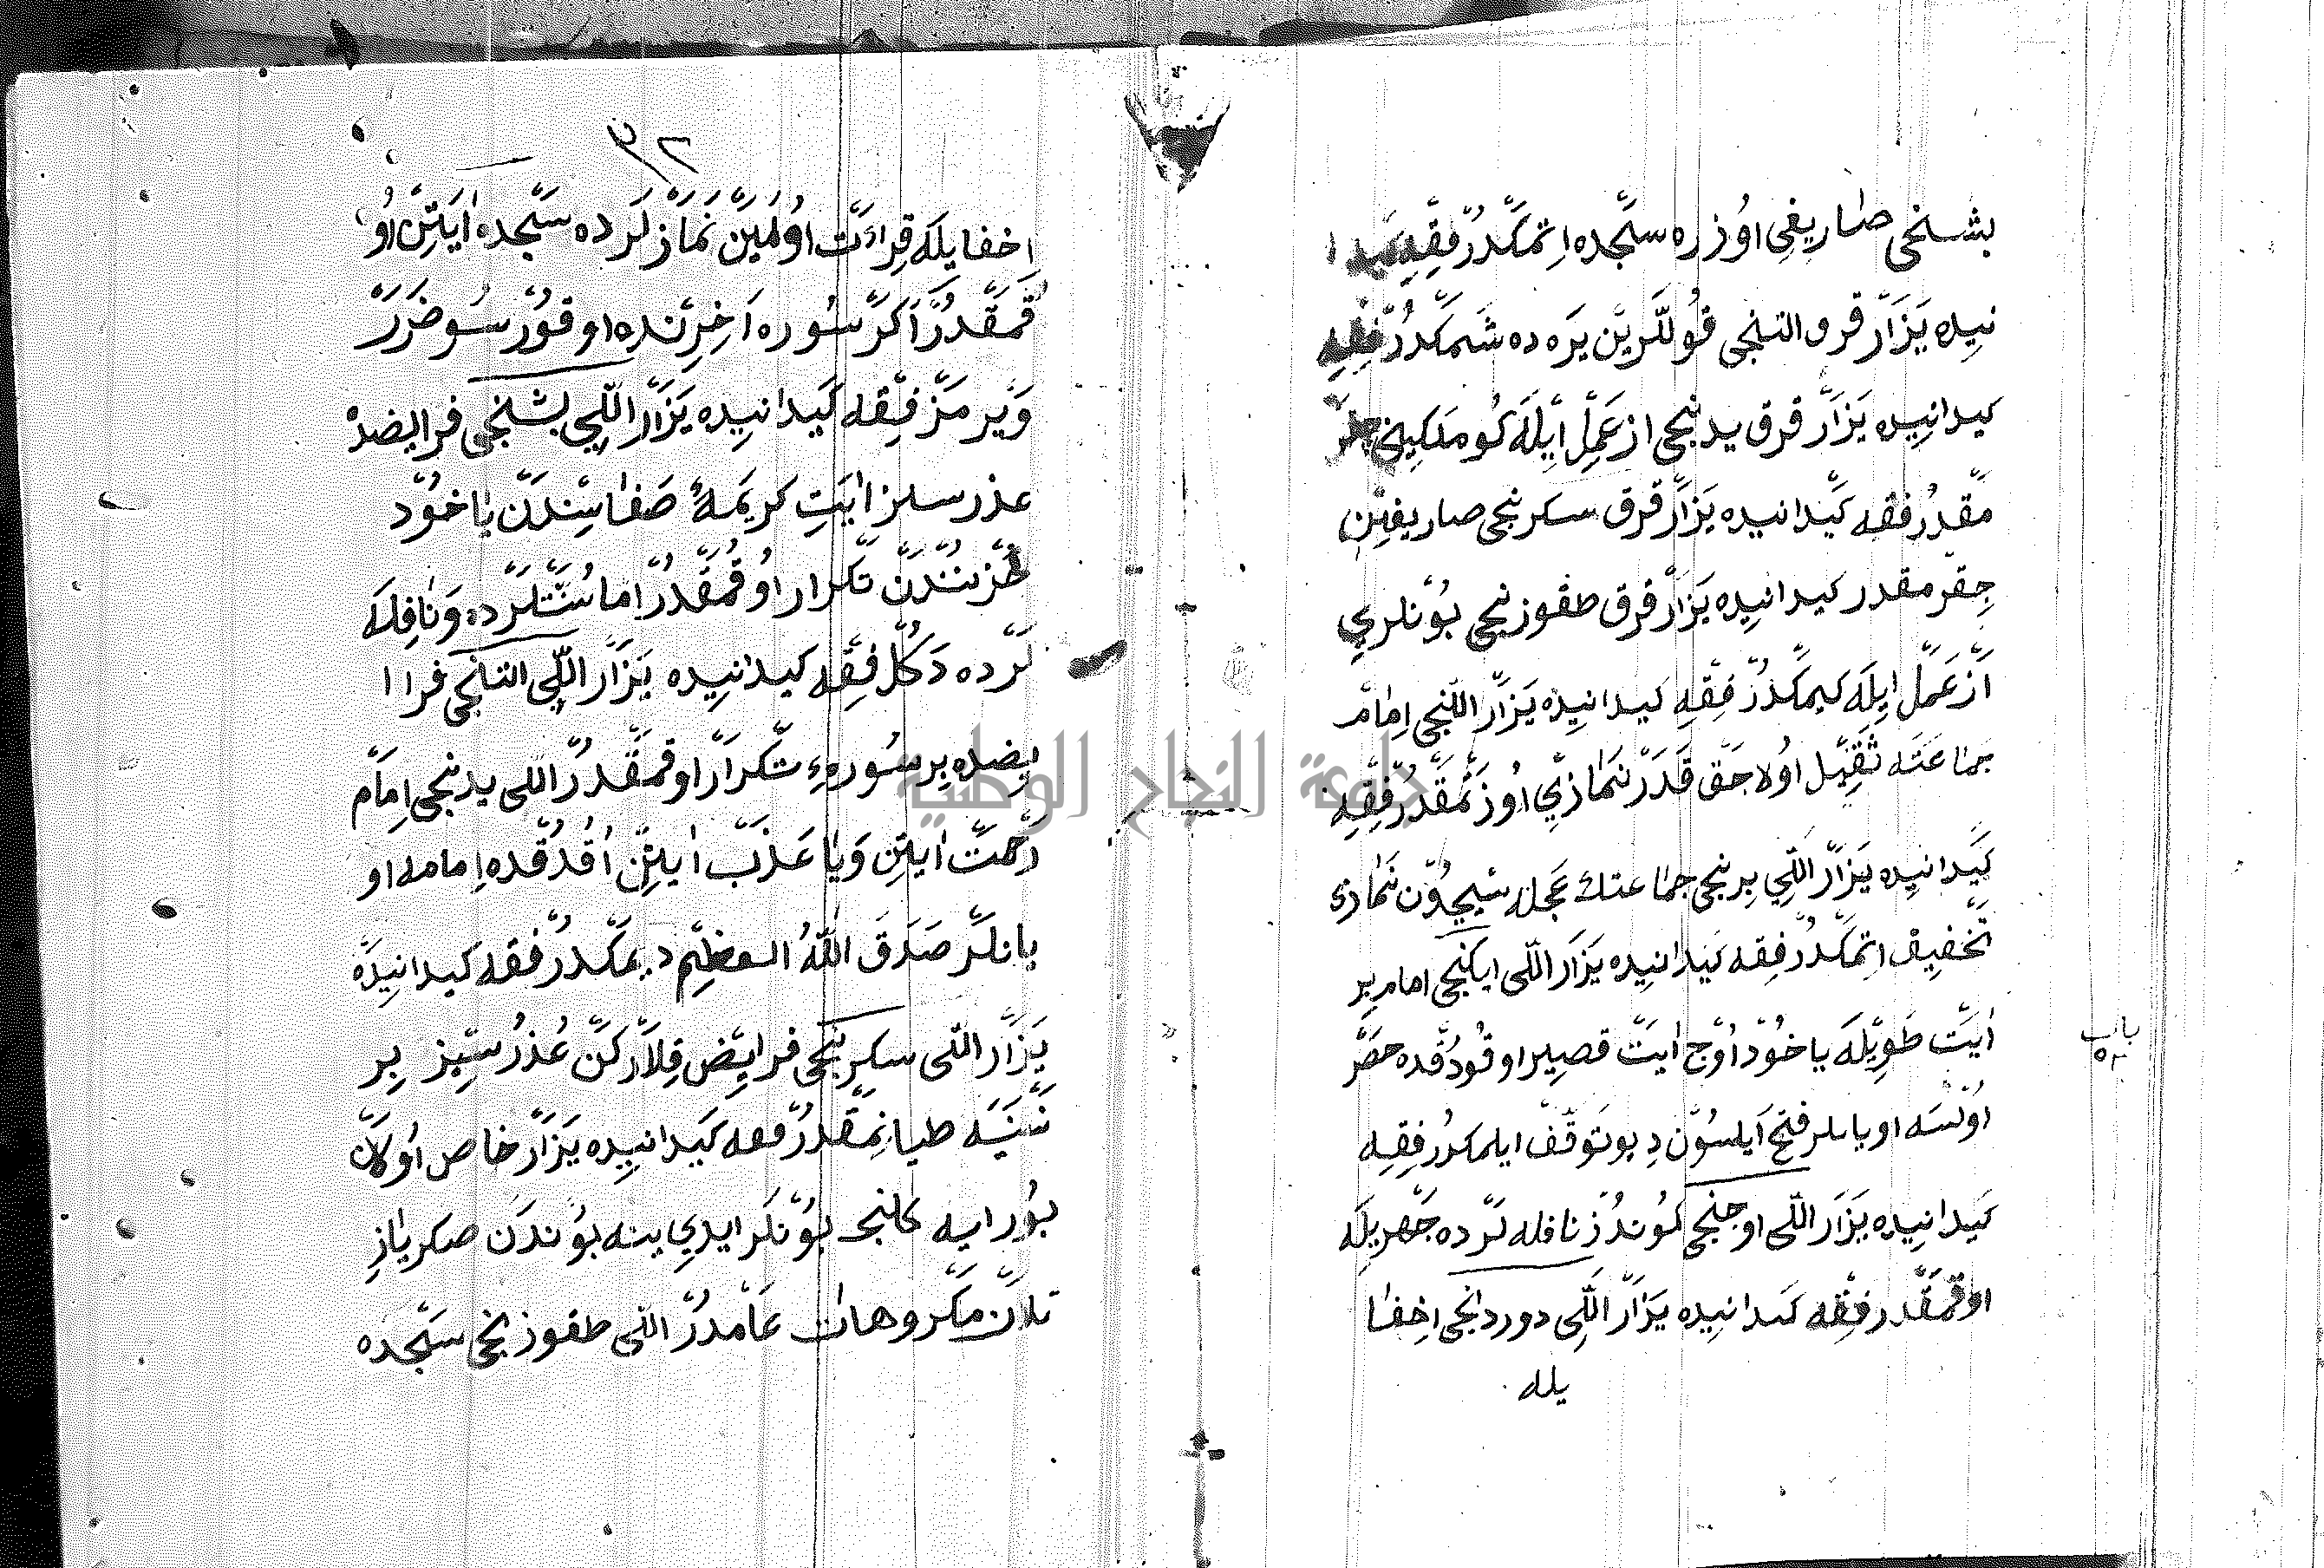 بشنجی صاریغی اوُزره سَجْده اِتمكدُر فِقْهِ
نیِده یَزَارْ قرق التنجی قُوللَرینْ یَره دُشَمكدُرْ فِقهِ
كیدانیده یَزَارْ قرق یدنجی از عَمَل اَیلَه كُوملكِینی
مَقدُر فِقه كَیدانیده یَزَارْ قرق سكزنجی صاریغِین
چِقرمقدر كیدانیده یَزَارْ قرق طقوزنجی بُوْنلری
اَزْ عَمَل اِیلَه كیمكدُرْ فِقْهِ كیدانیده یَزَارْ اللنجی اِمَامْ
جماعَتَه ثَقِیل اوُلاجَق قَدَرْ نَمازِی اوُزَتْمَقْدُرْ فِقْهِ
كَیدانیده یَزَارْ اللّی برنجی جماعتك عَجله سیچوُن نَمازی
تخفیف اِتمكدُرْ فِقه كَیدانیده یَزَارْ اللّی ایكنجی امام بر
اٰیَتْ طَوِیلَه یاخُوْد اوُچ اٰیَتْ قصیر اوقوُدُقده حصَرْ
اوُلنسَه اویانلر فتح اَیلسُوْن دِیو تَوَقّفْ ایلمكدُر فِقهِ
كَیدانیده یَزَارْ اللّی اوچنجی كُوندُزْ نافله لَرْده جَهر یلَه
اوقمَقْدر فِقْه كیدانیده یَزَارْ اللّی دوردنجی اخِفَا
یله
باب
٥٢
٣٢
اخفا یلَه قِرائَتْ اوُلَنَنْ نَمَازْ لَرده سَجْده اٰیَتِنْ اوُ
قُمَقْدُرْ اَكَرْ سُوره اَخِرِنْده اوقوُرسُو ضَرَرْ
وَیرمَزْ فِقْه كَیدانیده یَزَارْ اللّی بشنجی فرایضدْ
عذرسز اٰیَتِ كریمَهٔ صَفَاسِندَنْ یاخُوْد
حُزننْدَنْ تَكرار اوُقُمَقْدُرْ اما سُنَّتلَرْده وَنَافِلَه
لَرْده دَكُل فِقْه كیدانیده یَزَارْ اللّی التنجی فرا
یضده بر سُورهءِ تَكرارْ اوقُمَقْدُرْ اللّی یدنجی اِمَامْ
رَحْمَتْ اٰیتِن وَیَا عَذَبْ اٰیتِنْ اُقُدُقْده اِمامه او
یانلَرْ صَدَقَ اللّٰهُ العظِیم دیمكدُرْ فقه كیدانیده
یَزَارْ اللّی سكزنجی فرایِضْ قِلاَركَنْ عُذُرسِیز بِر
نَسنَیَه طیانمَقْدُرْ فقه كَیدانیِده یَزَارْ خاص اوُلاَنْ
بوُرایه كلنجه بوُنلَر ایدِی ینه بُوندَن صكر یَازِ
تلاَنْ مَكروهات عَامْدُرْ اللّی طقوزنجی سَجْده